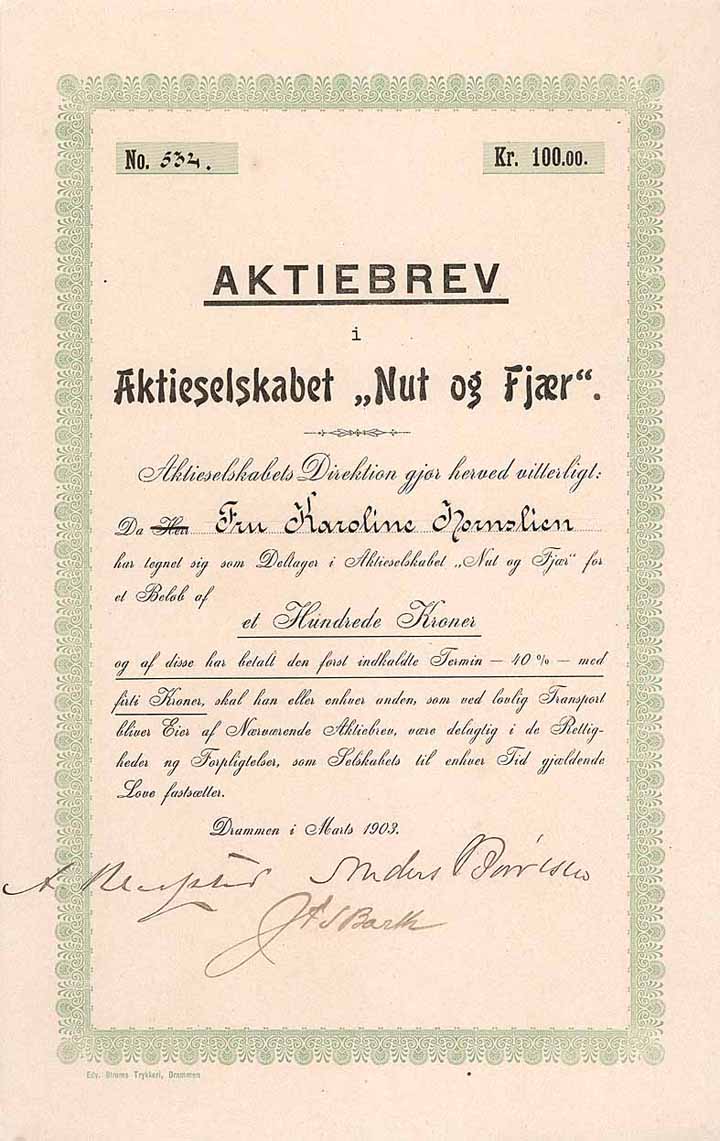 No. 534.
Kr. 100.00.
AKTIEBREV
i
Aktieselskabet „Nut og Fjær“.
Aktieselskabets Direktion gjør herved vitterligt:
Da Herr Fru Karoline Hornslien
har tegnet sig som Deltager i Aktieselskabet „Nut og Fjær“ for
et Beløb af
et Hundrede Kroner
og af disse har betalt den først indkaldte Termin — 40 % — med
firti Kroner, skal han eller enhver anden, som ved lovlig Transport
bliver Eier af Nærværende Aktiebrev, være delagtig i de Rettig-
heder ng Forpligtelser, som Selskabets til enhver Tid gjældende
Love fastsætter.
Drammen i Marts 1903.
A
Anders
Bark
Edv. Strøms Trykkeri, Drammen